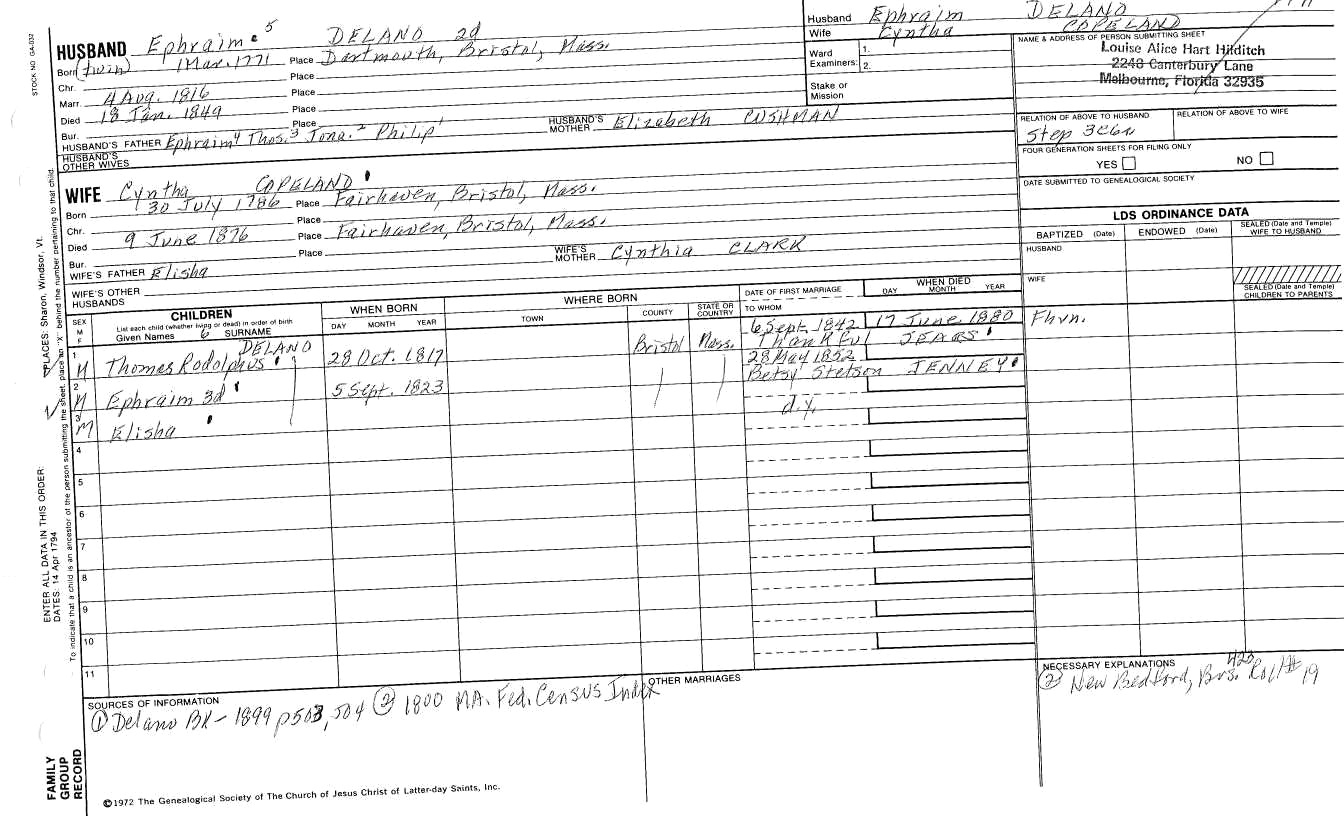 STOCK NO. GA-032
HUSBAND Ephraim 5 DELANO 2d
Born (twin) 1 Mar. 1771 Place Dartmouth, Bristol, Mass.
Chr. Place
Marr. 4 Aug. 1816 Place
Died 18 Jan. 1849 Place
Bur. Place
HUSBAND'S FATHER Ephraim 4 Thos. 3 Jona. 2 Philip 1 HUSBAND'S MOTHER Elizabeth CUSHMAN
HUSBAND'S OTHER WIVES
WIFE Cyntha COPELAND
Born 30 July 1786 Place Fairhaven, Bristol, Mass.
Chr. Place
Died 9 June 1876 Place Fairhaven, Bristol, Mass.
Bur. Place
WIFE'S FATHER Elisha WIFE'S MOTHER Cynthia CLARK
WIFE'S OTHER HUSBANDS
Husband Ephraim DELANO
Wife Cyntha COPELAND
Ward Examiners: 1. 2.
Stake or Mission
NAME & ADDRESS OF PERSON SUBMITTING SHEET
Louise Alice Hart Hilditch
2248 Canterbury Lane
Melbourne, Florida 32935
RELATION OF ABOVE TO HUSBAND RELATION OF ABOVE TO WIFE
Step
FOUR GENERATION SHEETS FOR FILING ONLY
YES NO
DATE SUBMITTED TO GENEALOGICAL SOCIETY
LDS ORDINANCE DATA
BAPTIZED (Date) ENDOWED (Date) SEALED (Date and Temple) WIFE TO HUSBAND
HUSBAND
WIFE
SEALED (Date and Temple) CHILDREN TO PARENTS
SEX M F
CHILDREN
List each child (whether living or dead) in order of birth
Given Names 6 SURNAME
WHEN BORN
DAY MONTH YEAR
WHERE BORN
TOWN COUNTY STATE OR COUNTRY
DATE OF FIRST MARRIAGE
TO WHOM
WHEN DIED
DAY MONTH YEAR
1 M Thomas Rodolphus DELANO 28 Oct. 1817 Bristol Mass. 6 Sept. 1842 17 June 1880 Fhvn.
Thankful SEARS
2 M Ephraim 3d 5 Sept. 1823 28 May 1852
Betsy Stetson JENNEY
3 M Elisha d.y.
4
5
6
7
8
9
10
11
SOURCES OF INFORMATION
① Delano BK - 1899 p503, 504 ② 1800 MA. Fed. Census Index
OTHER MARRIAGES
NECESSARY EXPLANATIONS
② New Bedford, Brs. 423 Roll # 19
ENTER ALL DATA IN THIS ORDER:
DATES: 14 Apr 1794
PLACES: Sharon, Windsor, Vt.
To indicate that a child is an ancestor of the person submitting the sheet, place an "X" behind the number pertaining to that child.
FAMILY GROUP RECORD
©1972 The Genealogical Society of The Church of Jesus Christ of Latter-day Saints, Inc.